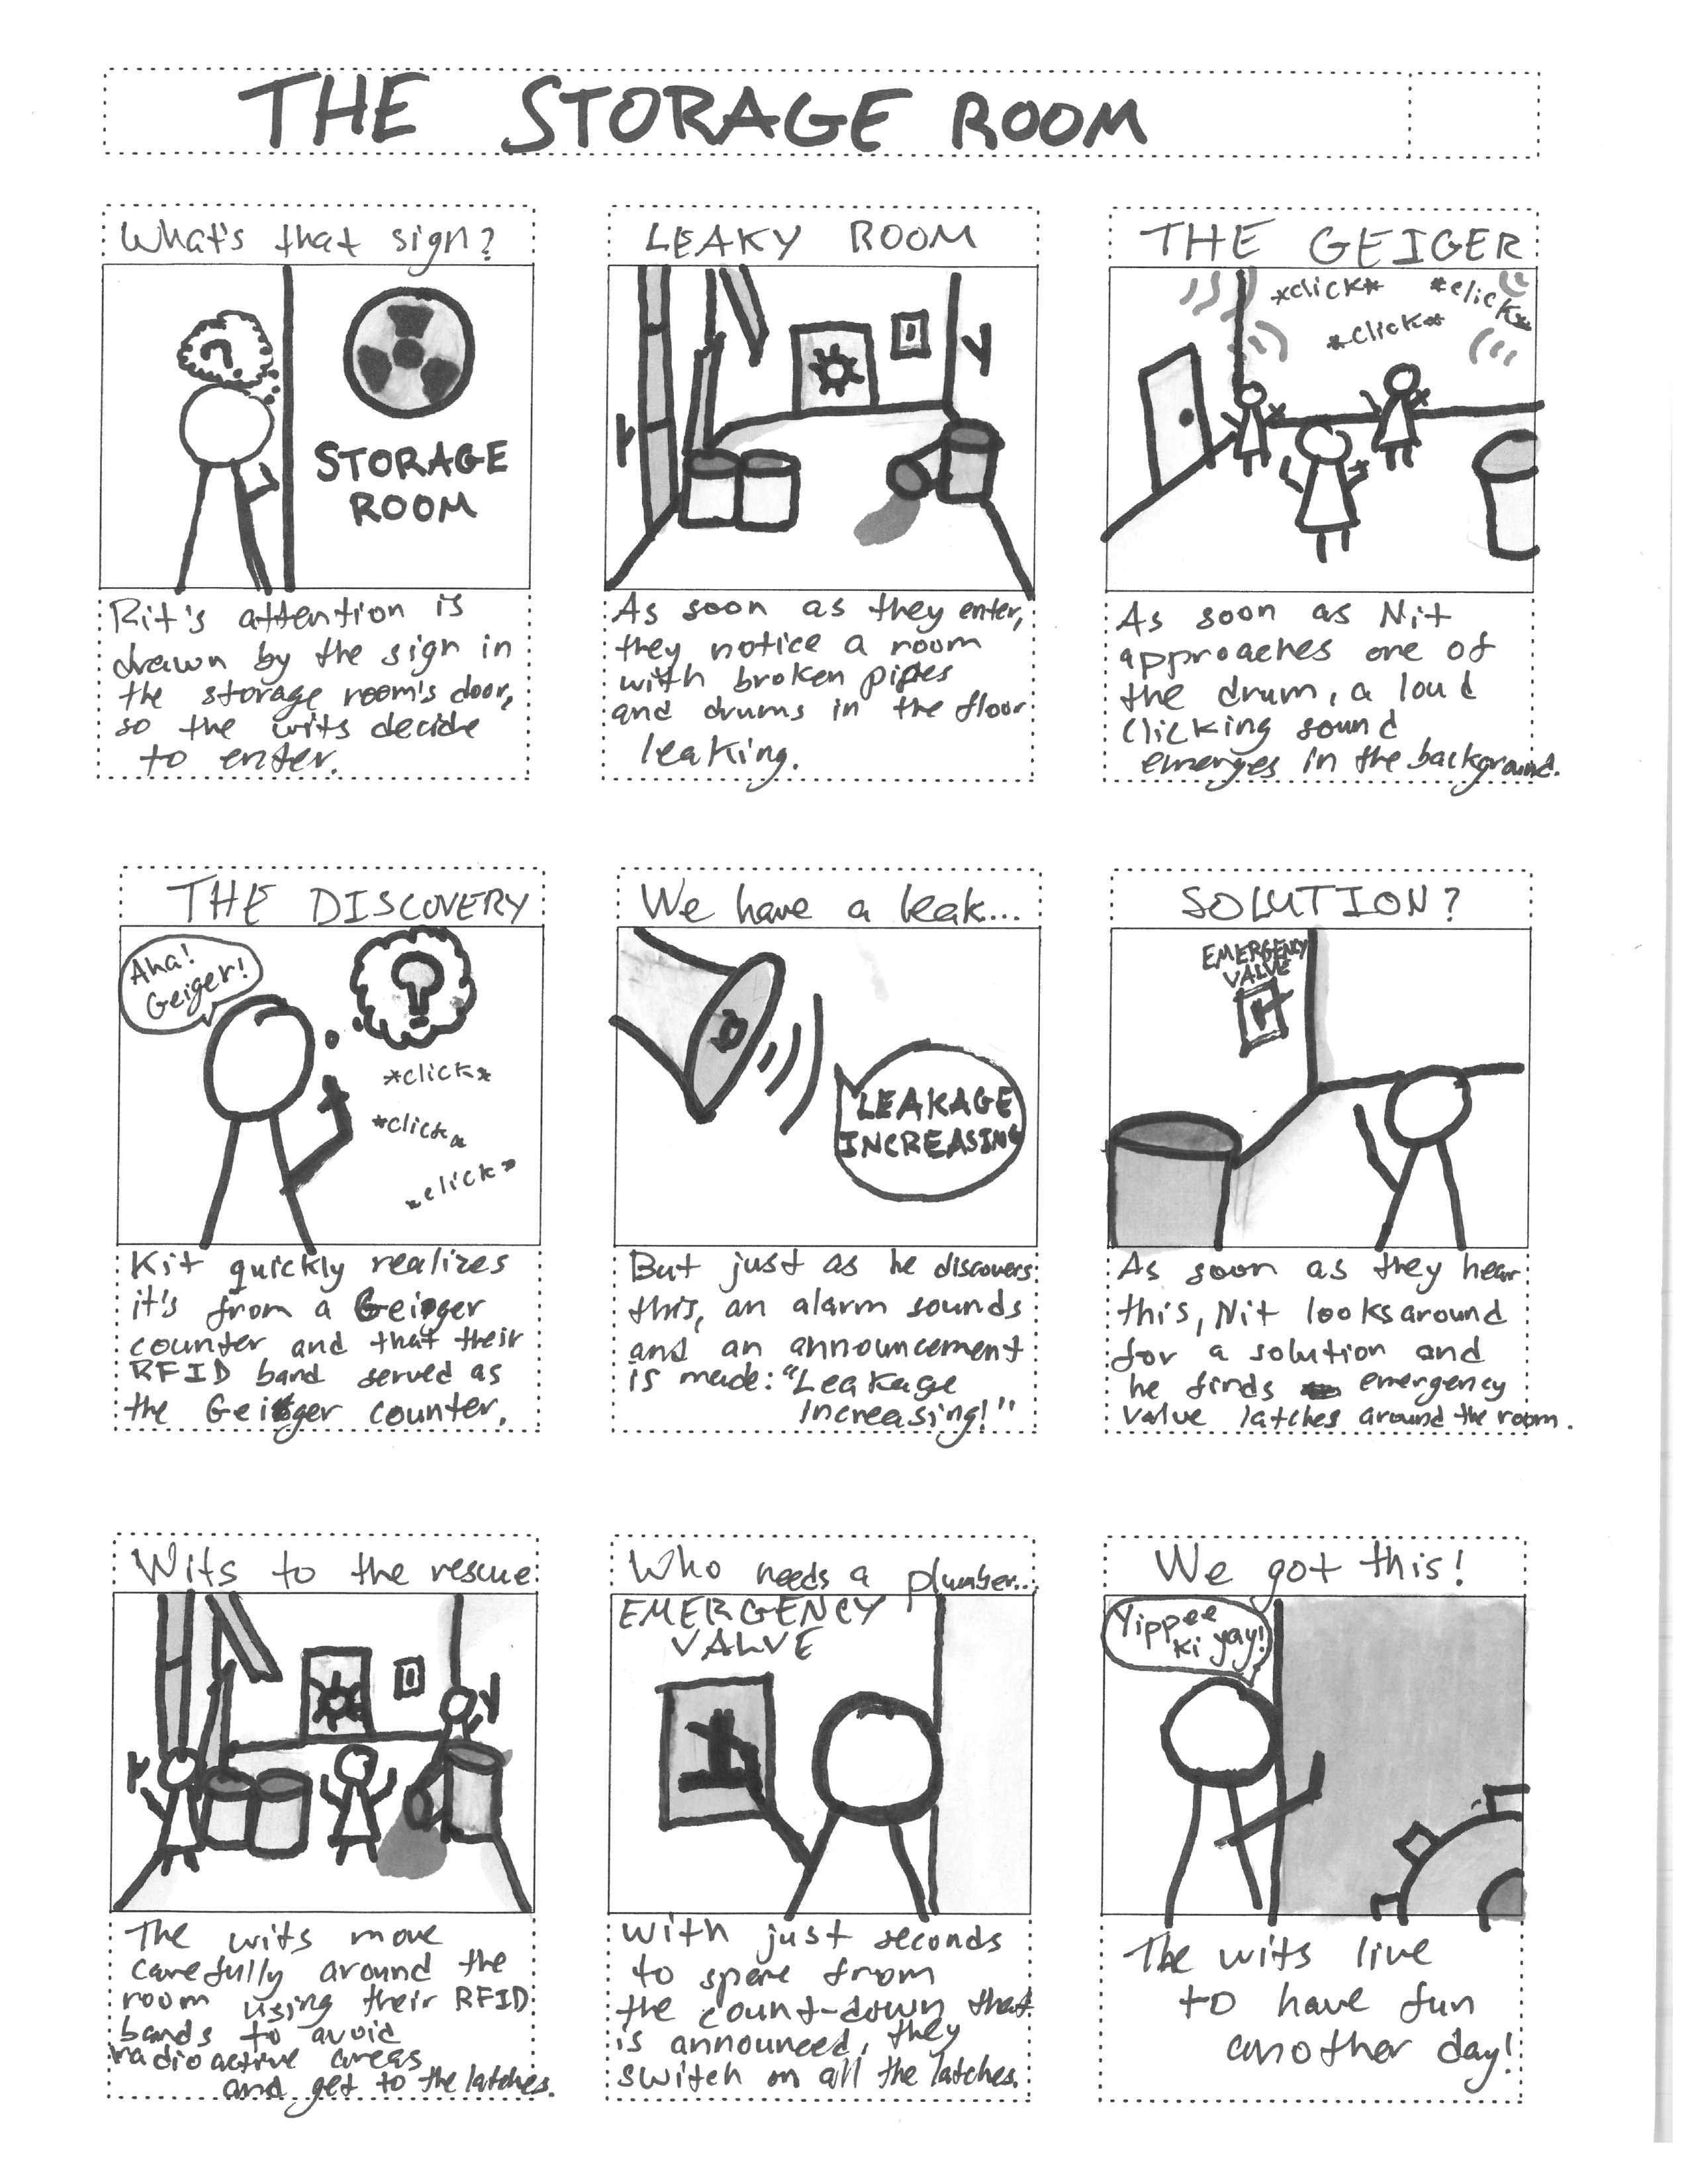 THE STORAGE ROOM
What's that sign?
?
STORAGE
ROOM
Rit's attention is
drawn by the sign in
the storage room's door,
so the wits decide
to enter.
LEAKY ROOM
As soon as they enter,
they notice a room
with broken pipes
and drums in the floor
leaking.
THE GEIGER
*click*
*click*
*click*
As soon as Nit
approaches one of
the drum, a loud
clicking sound
emerges in the background.
THE DISCOVERY
Aha!
Geiger!
*click*
*click*
*click*
Kit quickly realizes
it's from a Geiger
counter and that their
RFID band served as
the Geiger counter.
We have a leak...
LEAKAGE
INCREASING
But just as he discovers
this, an alarm sounds
and an announcement
is made: "Leakage
Increasing!"
SOLUTION?
EMERGENCY
VALVE
As soon as they hear
this, Nit looks around
for a solution and
he finds emergency
value latches around the room.
Wits to the rescue
The wits move
carefully around the
room using their RFID
bands to avoid
radioactive areas
and get to the latches.
Who needs a plumber...
EMERGENCY
VALVE
With just seconds
to spare from
the count-down that
is announced, they
switch on all the latches.
We got this!
Yippee
ki yay!
The wits live
to have fun
another day!